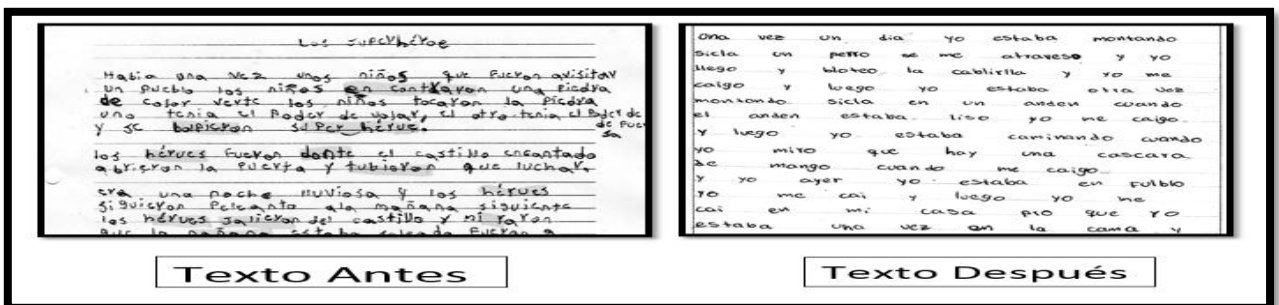 Los superhéroe
Habia una vez unos niños que fueron avisitar
un pueblo los niños en contraron una Piedra
de color verte los niños tocaron la Piedra
uno tenia el Poder de volar, el otro tenia el Poder de
de Fuer
sa
y se super hérue.
los hérues fueron donte el castillo encantado
abrieron la puerta y tubieron que luchar.
era una noche lluviosa y los hérues
siguieron Peleanto ala mañana siguiente
los hérues salieron del castillo y mi raron
que la mañana estaba soleada fueron a
Texto Antes
una vez un dia yo estaba montando
sicla un perro se me atraveso y yo
llego y bloteo la cablirlla y yo me
caigo y luego yo estaba otra vez
montando sicla en un anden cuando
el anden estaba liso yo me caigo.
y luego yo estaba caminando cuando
yo miro que hay una cascara
de mango cuando me caigo.
y yo ayer yo estaba en fulblo
yo me cai y luego yo me
cai en mi casa pro que yo
estaba una vez en la cama y
Texto Después